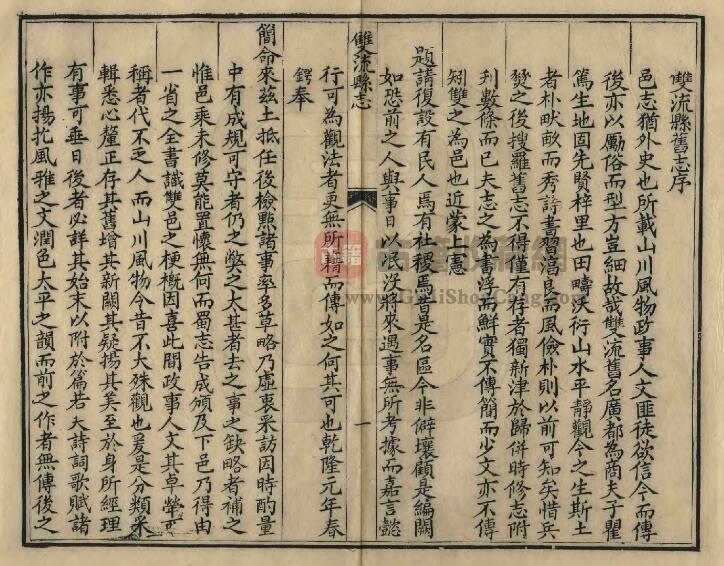 雙流縣舊志序
邑志猶外史也所載山川風物政事人文匪徒欲信今而傳
後亦以勵俗而型方豈細故哉雙流舊名廣都為商夫子瞿
篤生地固先賢梓里也田疇沃衍山水平靜觀今之生斯土
者朴畎畝而秀詩書習湻良而風儉朴則以前可知矣惜兵
燹之後搜羅舊志不得僅有存者獨新津於歸併時修志附
刋數條而已夫志之為書浮而鮮實不傳簡而少文亦不傳
矧雙之為邑也近蒙上憲
題請復設有民人焉有社稷焉昔是名區今非僻壤顧是編闕
如恐前之人與事日以泯没將來遇事無所考據而嘉言懿
雙流縣志
一
行可為觀法者更無所藉而傳如之何其可也乾隆元年春
鍔奉
簡命來茲土抵任後檢點諸事率多草略乃虛衷采訪因時酌量
中有成規可守者仍之獘之大甚者去之事之缺略者補之
惟邑乘未修莫能置懷無何而蜀志告成頒及下邑乃得由
一省之全書識雙邑之梗概因喜此間政事人文其卓犖可
稱者代不乏人而山川風物今昔不大殊觀也爰是分類采
輯悉心釐正存其舊增其新闕其疑揚其美至於身所經理
有事可垂日後者必詳其始末以附於篇若夫詩詞歌賦諸
作亦揚扢風雅之文潤色太平之韻而前之作者無傳後之